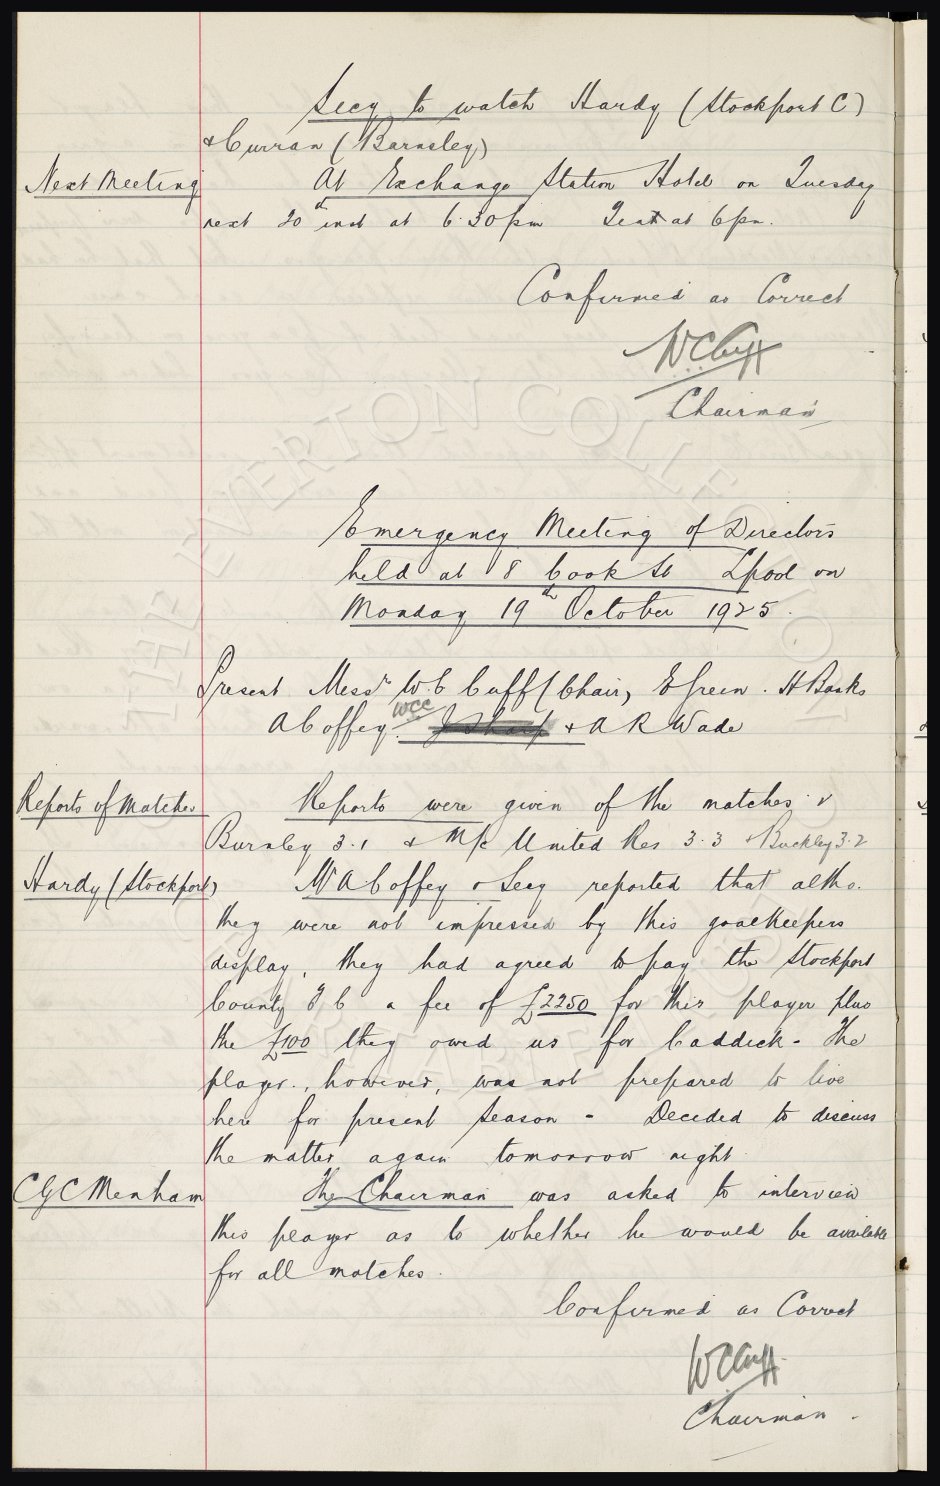 Secy to watch Hardy (Stockport C)
& Curran (Barnsley)
Next Meeting At Exchange Station Hotel on Tuesday
next 20th inst at 6.30 pm Tea at 6 pm.
Confirmed as Correct
W C Cuff
Chairman
THE EVERTON COLLECTION
Emergency Meeting of Directors
held at 8 Cook St Lpool on
Monday 19th October 1925.
Present Messrs W. C Cuff (Chair) E Green. H Banks
A Coffey. WCC J Sharp & A R Wade
Reports of Matches Reports were given of the matches v
Burnley 3.1 & M/c United Res 3.3 & Buckley 3.2
Hardy (Stockport) Mr A Coffey & Secy reported that altho.
they were not impressed by this goalkeepers
display, they had agreed to pay the Stockport
County F C a fee of £2250 for this player plus
the £100 they owed us for Caddick - The
player., however, was not prepared to live
here for present season - Decided to discuss
the matter again tomorrow night.
C G C Menham The Chairman was asked to interview
this player as to whether he would be available
for all matches.
Confirmed as Correct
W C Cuff
Chairman.